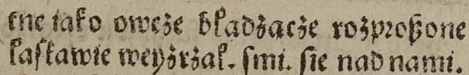 tne iako owcże błądżącże rożproßone
łaſkawie weyżrżał. ſmi. ſie nad nami.